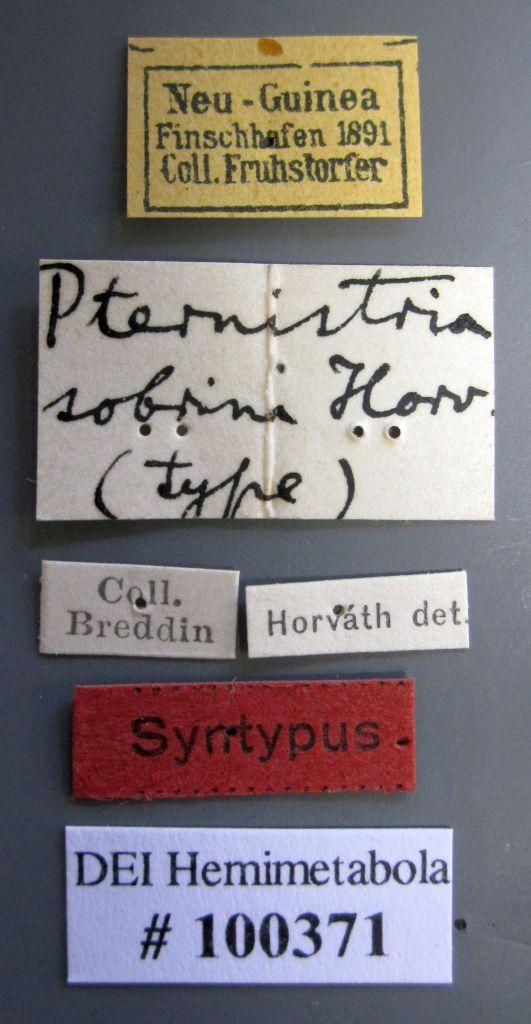 Neu-Guinea
Finschhafen 1891
Coll. Fruhstorfer
Pternistria
sobrini Horv.
(type)
Coll.
Breddin
Horváth det.
Syntypus
DEI Hemimetabola
# 100371